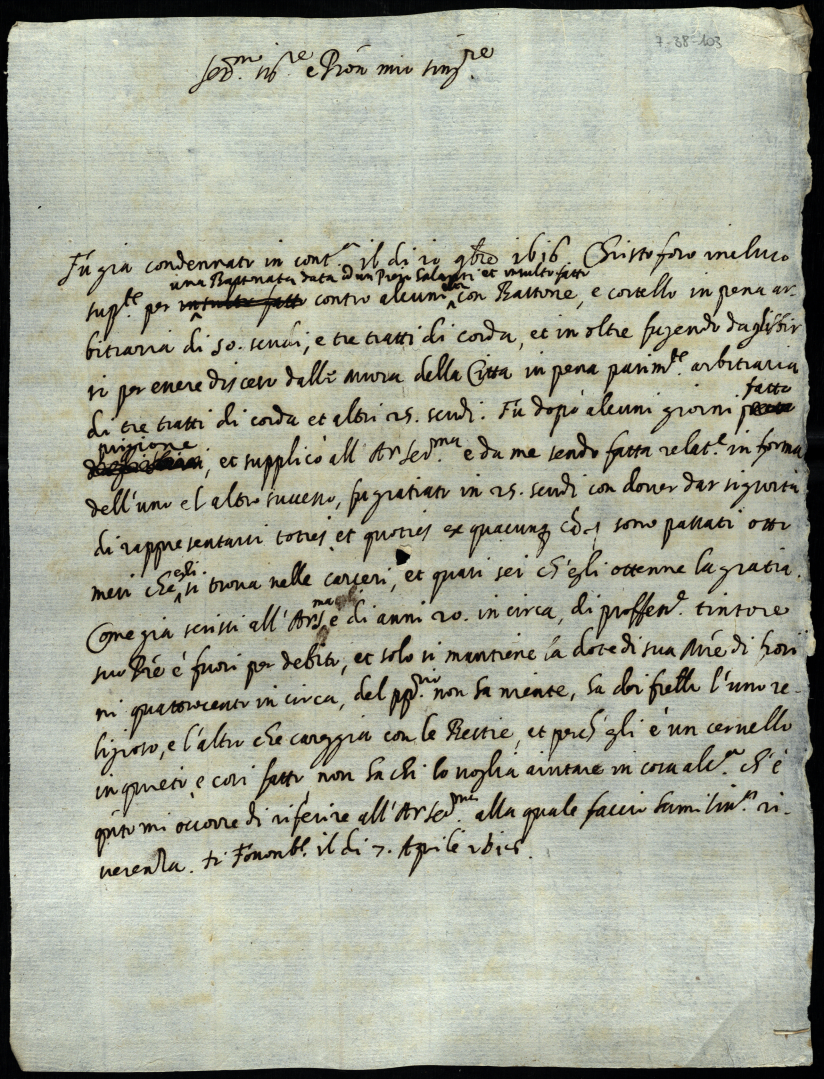 7-38-103
Ser.mo sig.re e Pron mio sing.re
Fu gia condennato in cont.a il di 20 9bre 1616 Christoforo incluso
una Bastonata data ad un Piero et insulto fatto
supl.te per insulto fatto contro alcuni con Bastone, e cortello in pena ar-
bitraria di 50. scudi, e tre tratti di corda, et in oltre fugendo da gli sbir
ri per essere disceso dalle mura della Citta in pena parim.te arbitraria
fatto
di tre tratti di corda et altri 25. scudi. Fu dopo alcuni giorni
prigione
et supplico all'A sua Ser.ma e da me sendo fatta relat.e in forma
dell'uno e l'altro successo, fu gratiato in 25. scudi con dover dar sigurtà
di rappresentarsi toties et quoties ex quacunq sono passati otto
egli
mesi che si trova nelle carceri, et quasi sei ch'egli ottenne la gratia.
Come gia scrissi all'A e di anni 20. in circa, di proffess.e tintore
suo Pre è fuori per debito, et solo si mantiene la dote di sua Mre di fiori
ni quattrocento in circa, del pp.rio non ha niente, ha doi frelli l'uno re-
ligioso, e l'altro che careggia con le Bestie, et perch'egli è un cervello
inquieto, e cosi fatto non ha chi lo voglia aiutare in cosa alc.a ch'è
q.to mi occorre di riferire all'A sua Ser.ma alla quale faccio humiliss.a ri-
verenza. il di 7. Aprile